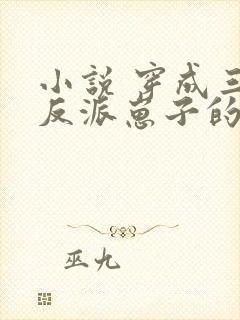 小说 穿成三
反派崽子的
巫九